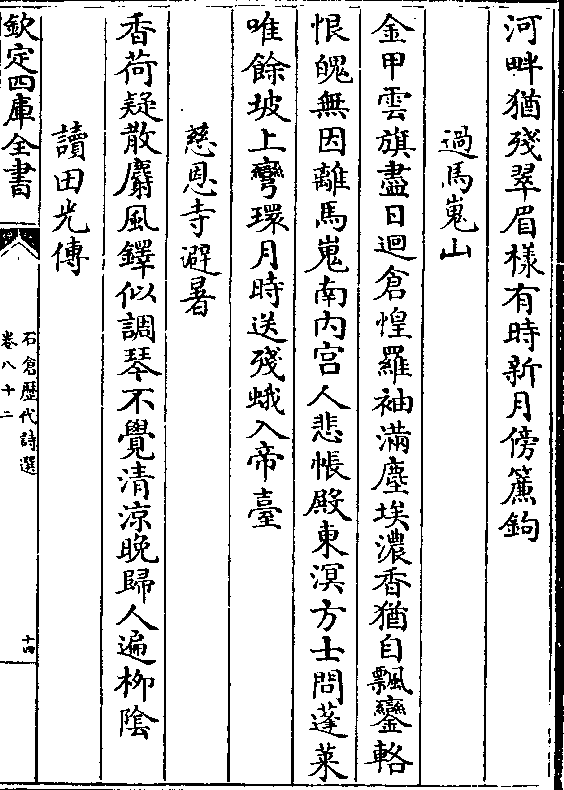 河畔猶殘翠眉樣有時新月傍簾鉤
過馬嵬山
金甲雲旗盡日迴倉惶羅袖滿塵埃濃香猶自飄鑾輅
恨魄無因離馬嵬南内宫人悲帳殿東溟方士問蓬萊
唯餘坡上彎環月時送殘蛾入帝臺
慈恩寺避暑
香荷疑散麝風鐸似調琴不覺清涼晚歸人遍柳陰
讀田光傳
欽定四庫全書
石倉歴代詩選
卷八十二
十四